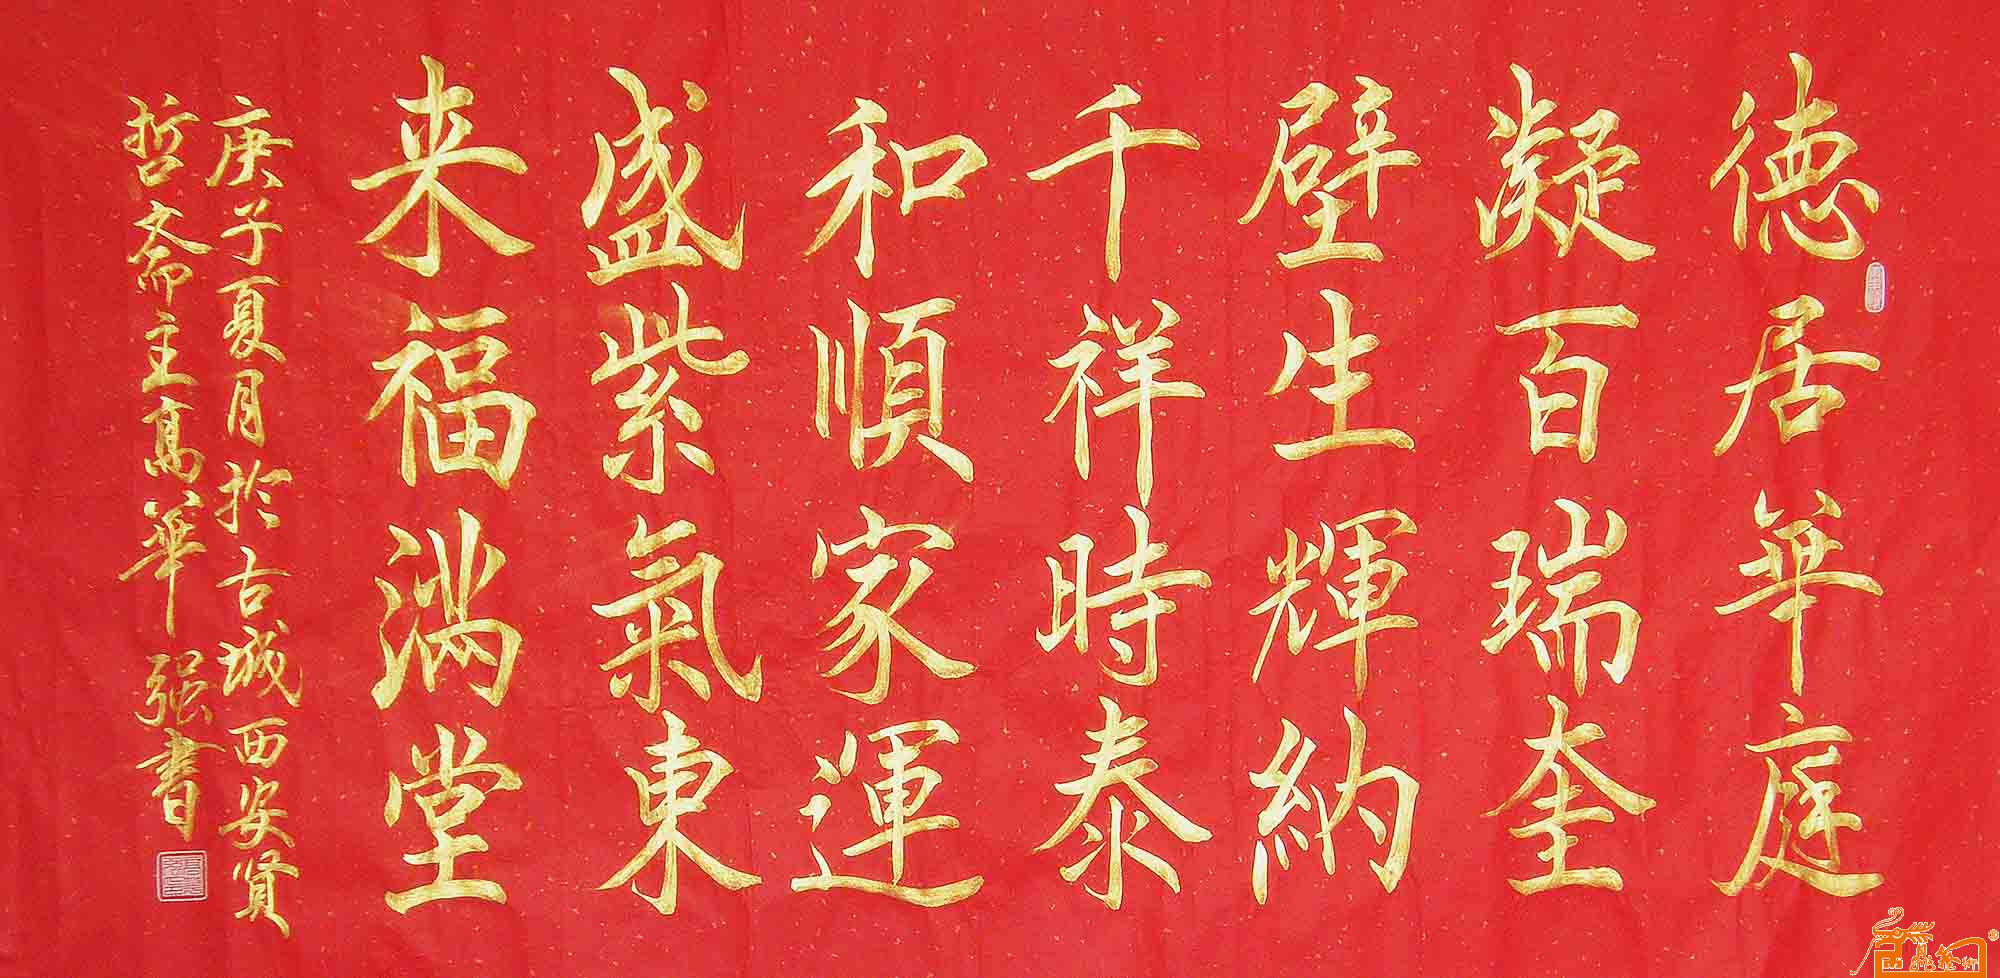 德居華庭
凝百瑞奎
壁生輝納
千祥時泰
和順家運
盛紫氣東
来福滿堂
庚子夏月於古城西安贤
哲斋主髙華强書